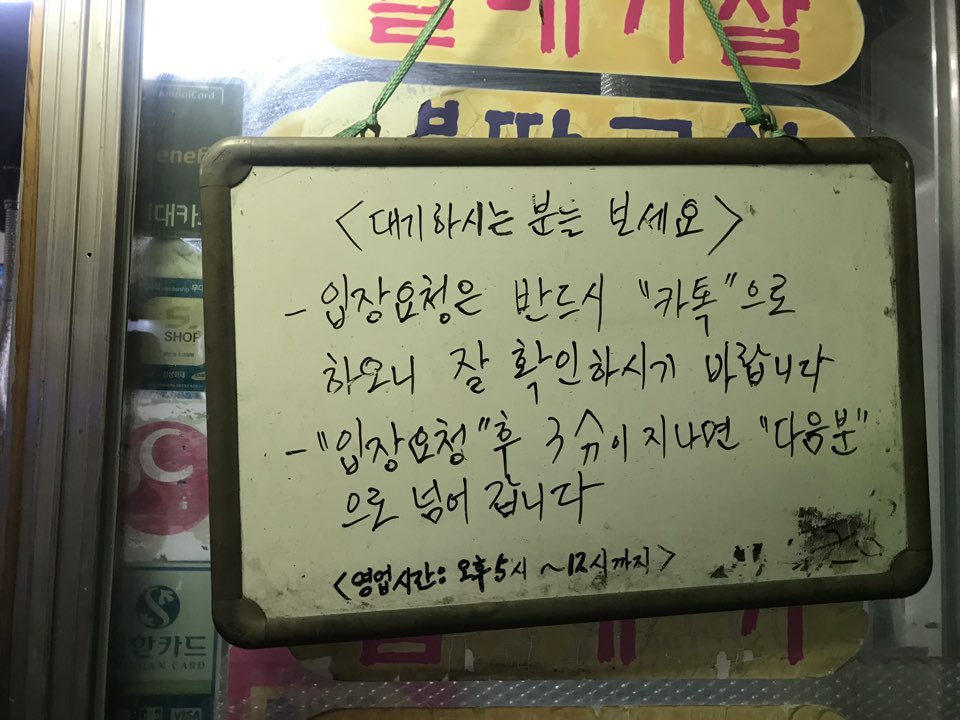 AmoiCard
<대기하시는 분들 보세요>
- 입장요청은 반드시 "카톡"으로
하오니 잘 확인하시기 바랍니다
- "입장요청"후 3分이 지나면 "다음분"
으로 넘어 갑니다
<영업시간: 오후 5시 ~12시까지>
SHOP
한카드
AN CARD
VISA